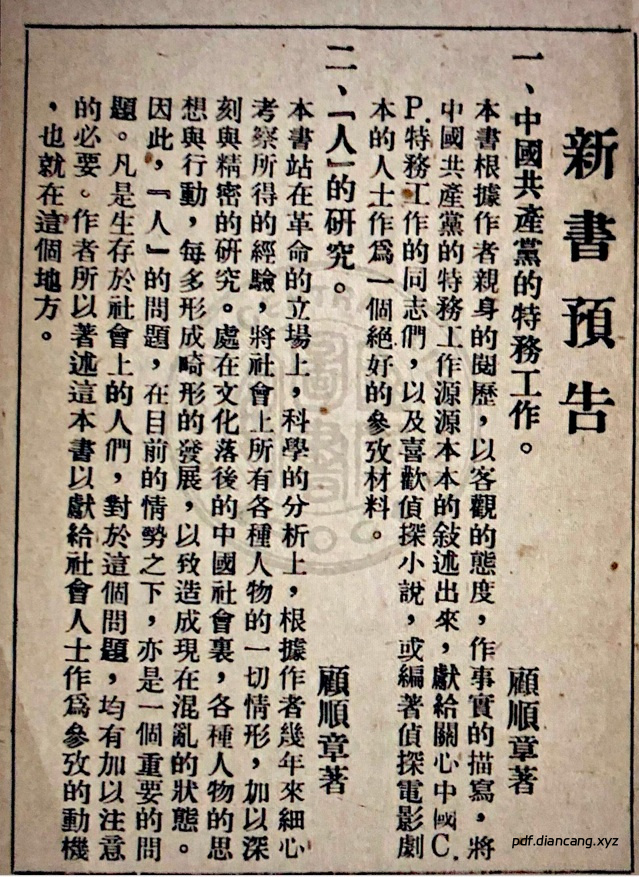 新書預告
一、中國共產黨的特務工作。　顧順章著
本書根據作者親身的閱歷，以客觀的態度，作事實的描寫，將
中國共產黨的特務工作源源本本的敍述出來，獻給關心中國C.
P.特務工作的同志們，以及喜歡偵探小說，或編著偵探電影劇
本的人士作爲一個絕好的參攷材料。
二、「人」的研究。　顧順章著
本書站在革命的立場上，科學的分析上，根據作者幾年來細心
考察所得的經驗，將社會上所有各種人物的一切情形，加以深
刻與精密的研究。處在文化落後的中國社會裏，各種人物的思
想與行動，每多形成畸形的發展，以致造成現在混亂的狀態。
因此，「人」的問題，在目前的情勢之下，亦是一個重要的問
題。凡是生存於社會上的人們，對於這個問題，均有加以注意
的必要。作者所以著述這本書以獻給社會人士作爲參攷的動機
，也就在這個地方。
pdf.diancang.xyz